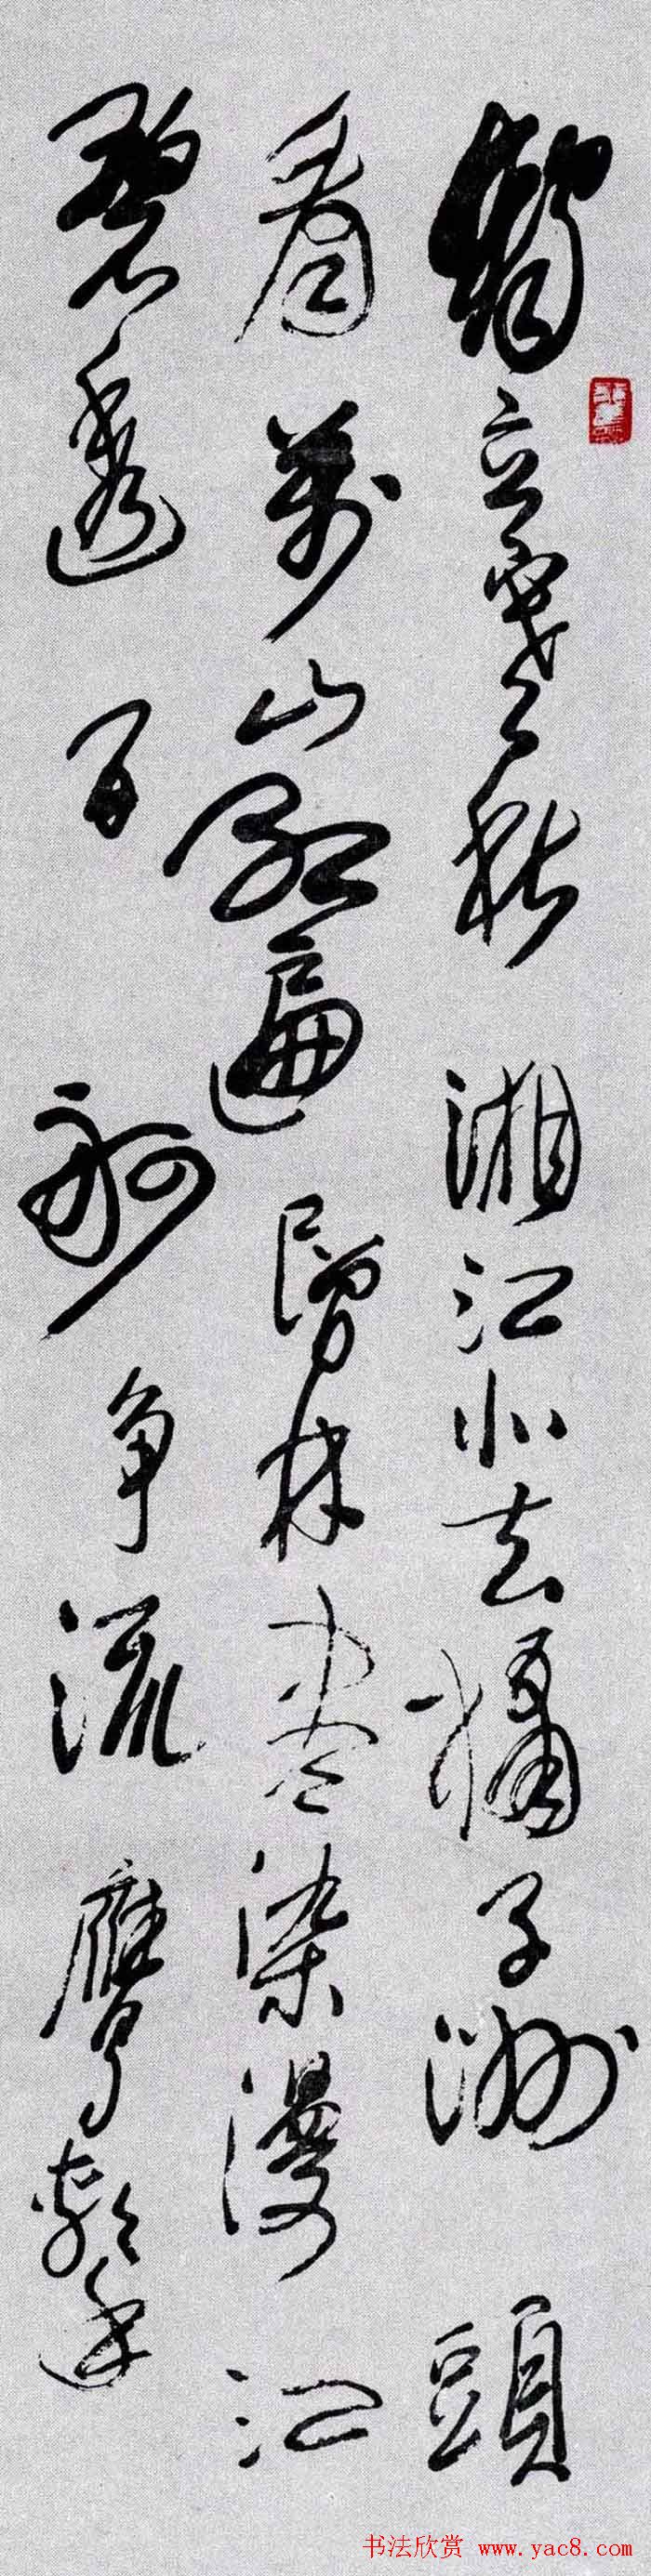 獨立寒秋湘江北去橘子洲頭
看萬山紅遍層林盡染漫江
碧透百舸争流鷹擊長
书法欣赏 www.yac8.com